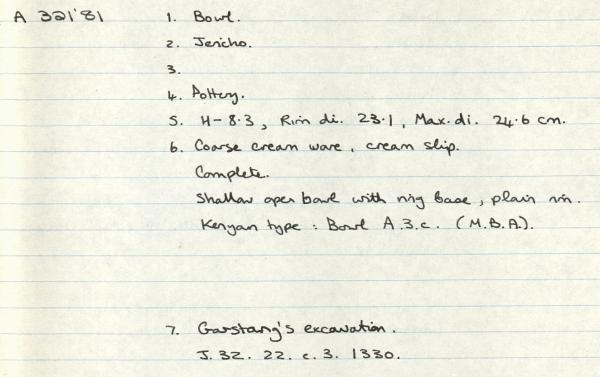 A 321'81
1. Bowl.
2. Jericho.
3.
4. Pottery.
5. H-8.3, Rim di. 23.1, Max.di. 24.6 cm.
6. Coarse cream ware, cream slip.
Complete.
Shallow open bowl with ring base, plain rim.
Kenyan type: Bowl A.3.c. (M.B.A).
7. Garstang's excavation.
J. 32. 22. c. 3. 1330.